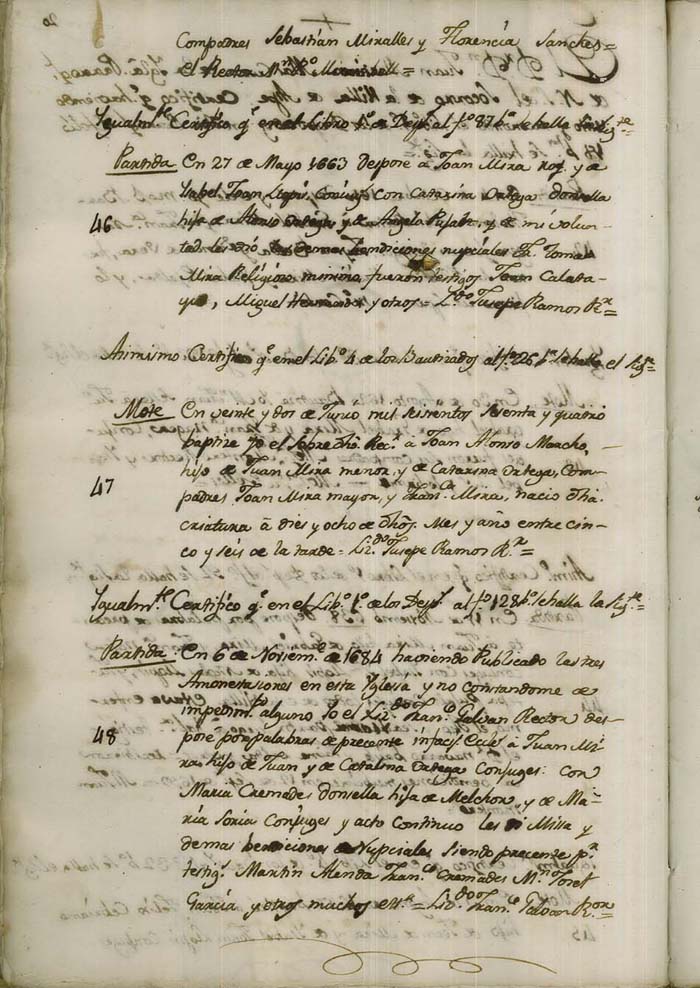 Compadres Sebastián Miralles y Florencia Sanches=
el Rector Mn
Igualmte Certifico q. en el Libro 1º de Desp. al fº 87 bº se halla la sigte
Partida En 27 de Mayo 1663 despose a Joan Mira y de
Isabel Joan Llopis, Conjugs con Catarina Ortega donsella
46 hija de Alonso Ortega y de Angela y de mi volun-
tad les dió las demas bendiciones nupciales Fr. Tomas
Mira Religioso minimo, fueron testigos Joan Calata-
yud, Miguel Hernandes y otros = Ldo Jusepe Ramos Rr=
Asimismo Certifico q. en el Libº 4 de los Bautizados al fº 26 bº se halla el sigte=
Mote En veinte y dos de Junio mil seisientos sesenta y quatro
baptize yo el sobre dho. Recr. à Joan Alonso Moncho,
hijo de Juan Mira menor, y de Catarina Ortega, Com-
47 padres Joan Mira mayor, y Franca Mira, nacio dha.
criatura à dies y ocho de dhos. Mes y año entre cin-
co y seis de la tarde = Lizdo Jusepe Ramos Rr=
Igualmte Certifico q. en el Libº 1º de los Desps al fº 128 bº se halla la sigte=
Partida En 6 de Noviembe de 1684 haviendo Publicado las tres
Amonestasiones en esta Yglesia y no constandome de
impedimto alguno yo el Lizdo Franco Galvan Rector des-
48 pose por palabras de precente infacie Ecles à Juan Mi-
ra hijo de Juan y de Catalina Ortega Conjuges: con
Maria Cremades donsella hija de Melchor, y de Ma-
ría Soria Conjuges y acto continuo les di Missa y
demas bendiciones Nupciales siendo precente pr
testigs Martin Alenda Franco Cremades Mn Josef
García y otros muchos = Lizdo Franco Galvan Ror=